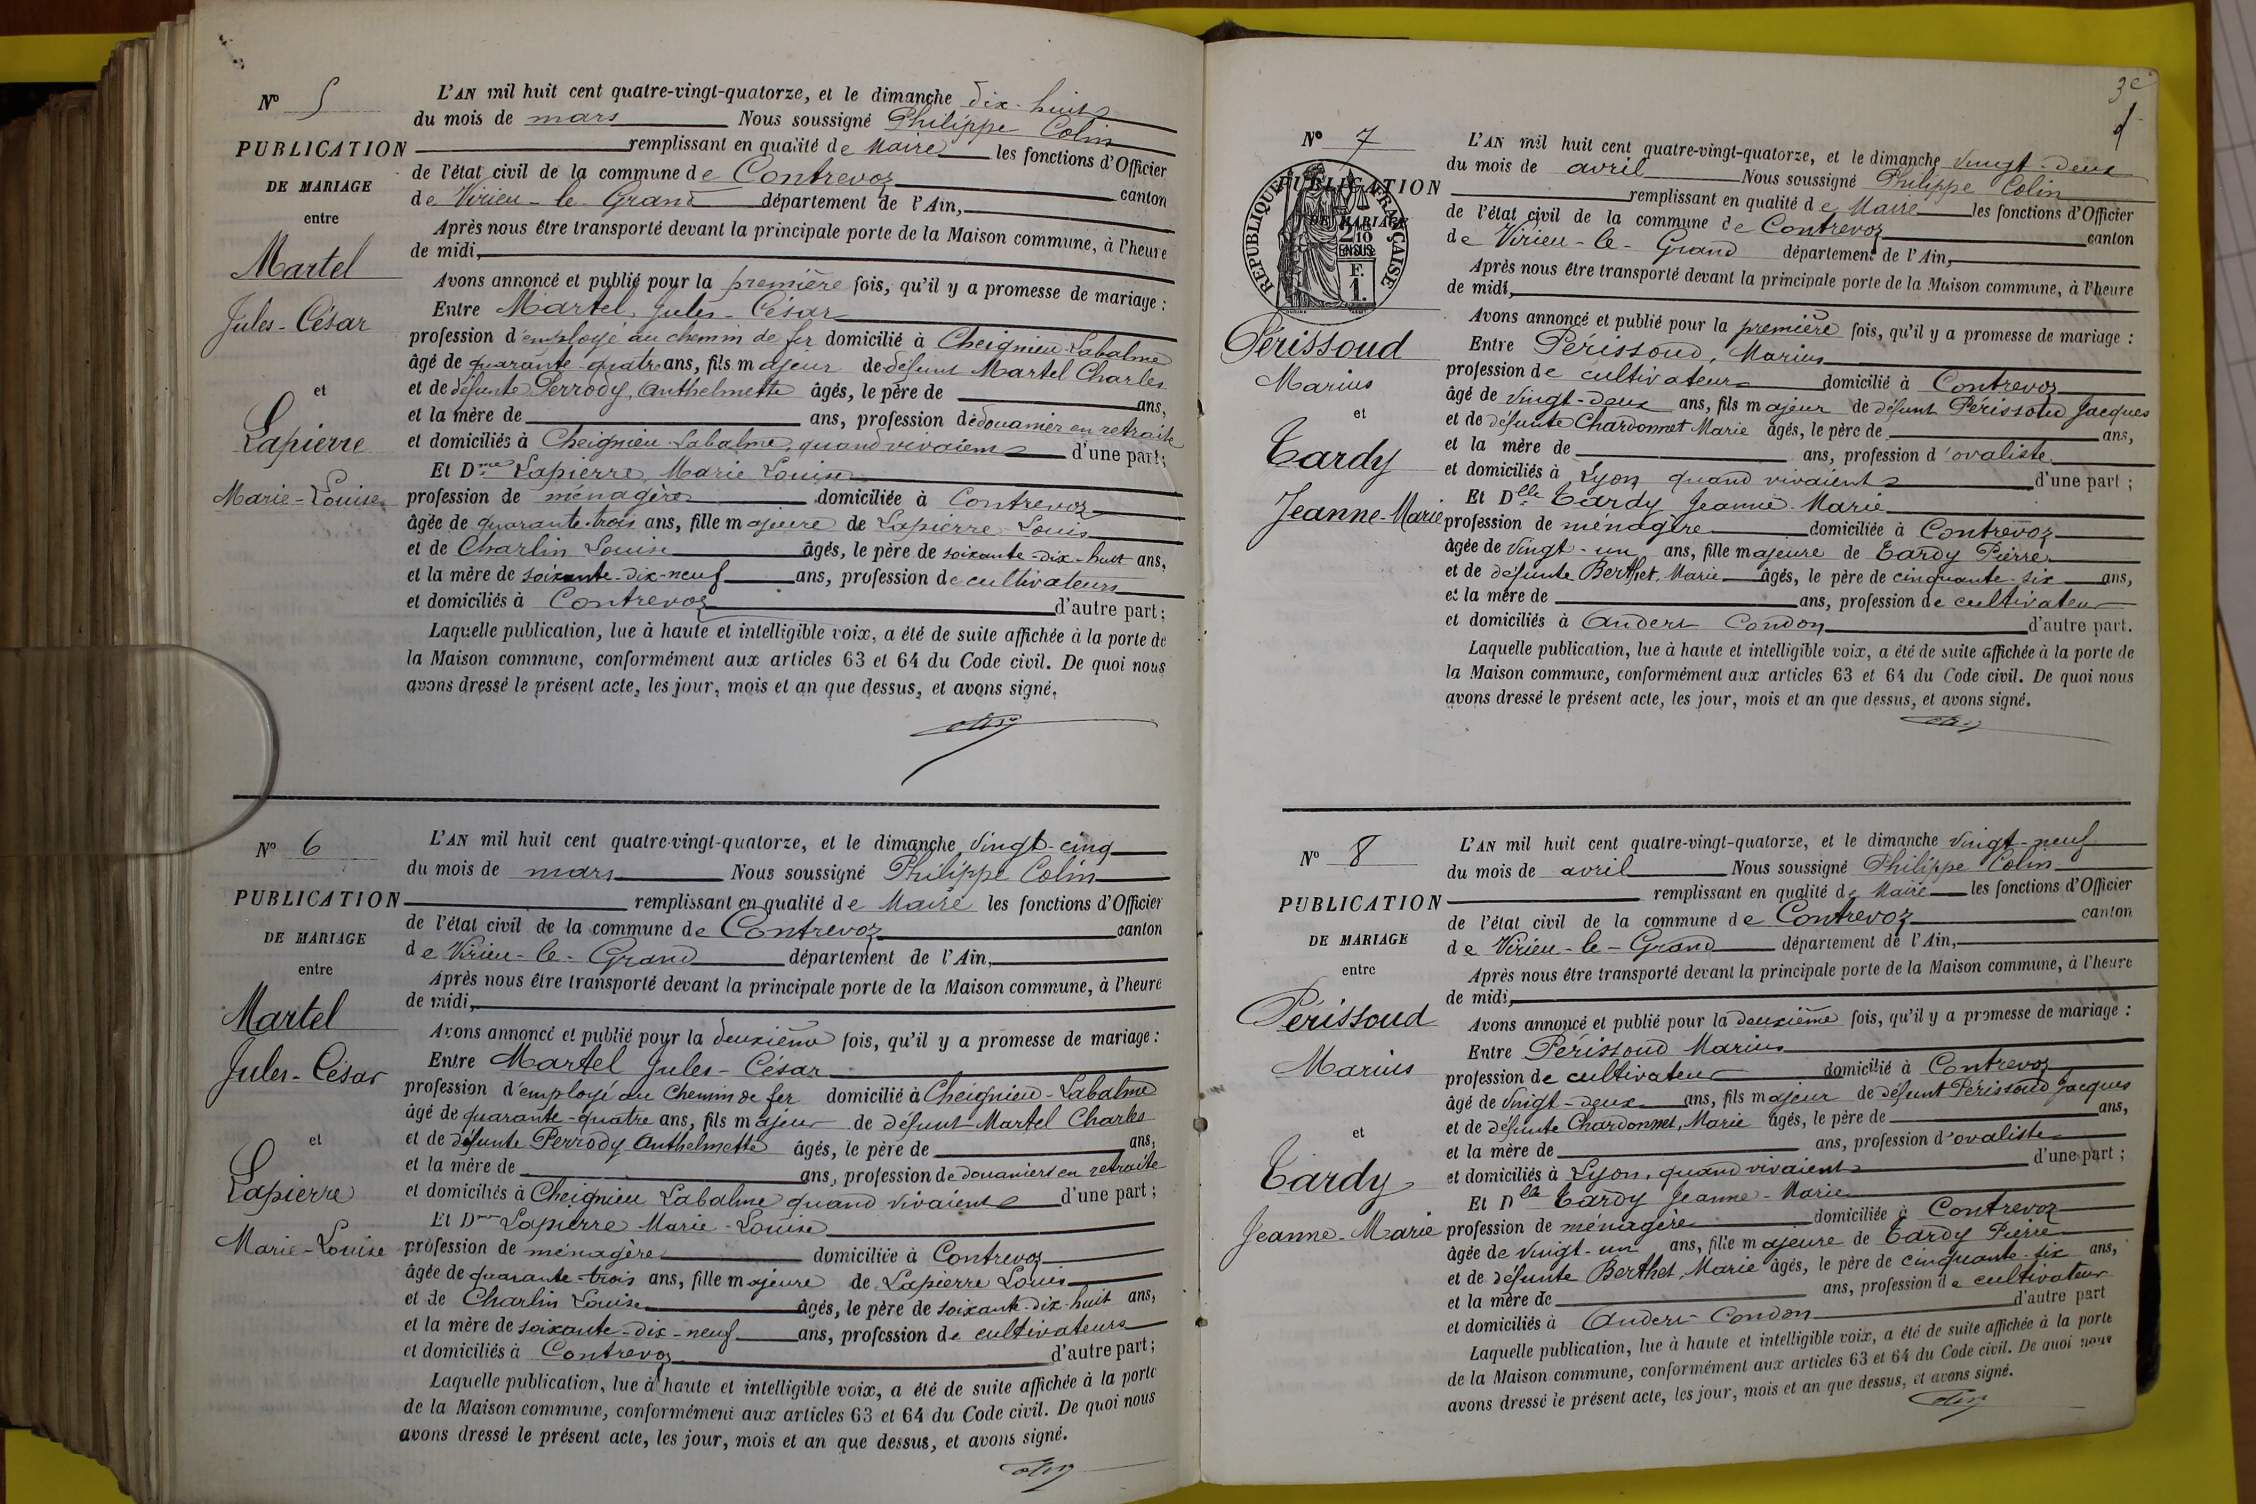 N° 5
PUBLICATION
DE MARIAGE
entre
Martel
Jules-César
et
Lapierre
Marie-Louise
L'AN mil huit cent quatre-vingt-quatorze, et le dimanche dix-huit
du mois de mars Nous soussigné Philippe Colin
remplissant en qualité de Maire les fonctions d'Officier
de l'état civil de la commune de Contrevoz
canton
de Virieu-le-Grand département de l'Ain,
Après nous être transporté devant la principale porte de la Maison commune, à l'heure
de midi,
Avons annoncé et publié pour la première fois, qu'il y a promesse de mariage :
Entre Martel, Jules-César
profession d'employé au chemin de fer domicilié à Cheignieu-Labalme
âgé de quarante-quatre ans, fils majeur de défunt Martel Charles
et de défunte Perrody, Anthelmette âgés, le père de ans,
et la mère de ans, profession de douanier en retraite
et domiciliés à Cheignieu-Labalme, quand vivaient d'une part;
Et Dme Lapierre Marie Louise
profession de ménagère domiciliée à Contrevoz
âgée de quarante-trois ans, fille majeure de Lapierre Louis
et de Charlin Louise âgés, le père de soixante-dix-huit ans,
et la mère de soixante-dix-neuf ans, profession de cultivateurs
et domiciliés à Contrevoz d'autre part;
Laquelle publication, lue à haute et intelligible voix, a été de suite affichée à la porte de
la Maison commune, conformément aux articles 63 et 64 du Code civil. De quoi nous
avons dressé le présent acte, les jour, mois et an que dessus, et avons signé.
Colin
N° 6
PUBLICATION
DE MARIAGE
entre
Martel
Jules-César
et
Lapierre
Marie-Louise
L'AN mil huit cent quatre-vingt-quatorze, et le dimanche vingt-cinq
du mois de mars Nous soussigné Philippe Colin
remplissant en qualité de Maire les fonctions d'Officier
de l'état civil de la commune de Contrevoz canton
de Virieu-le-Grand département de l'Ain,
Après nous être transporté devant la principale porte de la Maison commune, à l'heure
de midi,
Avons annoncé et publié pour la deuxième fois, qu'il y a promesse de mariage :
Entre Martel Jules-César
profession d'employé au chemin de fer domicilié à Cheignieu-Labalme
âgé de quarante-quatre ans, fils majeur de défunt Martel Charles
et de défunte Perrody Anthelmette âgés, le père de ans,
et la mère de ans, profession de douaniers en retraite
et domiciliés à Cheignieu Labalme quand vivaient d'une part;
Et Dme Lapierre Marie-Louise
profession de ménagère domiciliée à Contrevoz
âgée de quarante-trois ans, fille majeure de Lapierre Louis
et de Charlin Louise âgés, le père de soixante-dix-huit ans,
et la mère de soixante-dix-neuf ans, profession de cultivateurs
et domiciliés à Contrevoz d'autre part;
Laquelle publication, lue à haute et intelligible voix, a été de suite affichée à la porte
de la Maison commune, conformément aux articles 63 et 64 du Code civil. De quoi nous
avons dressé le présent acte, les jour, mois et an que dessus, et avons signé.
Colin
N° 7
PUBLICATION
DE MARIAGE
RÉPUBLIQUE FRANÇAISE
2/10
EN SUS
F.
1.
Périssoud
Marius
et
Tardy
Jeanne-Marie
L'AN mil huit cent quatre-vingt-quatorze, et le dimanche vingt-deux
du mois de avril Nous soussigné Philippe Colin
remplissant en qualité de Maire les fonctions d'Officier
de l'état civil de la commune de Contrevoz canton
de Virieu-le-Grand département de l'Ain,
Après nous être transporté devant la principale porte de la Maison commune, à l'heure
de midi,
Avons annoncé et publié pour la première fois, qu'il y a promesse de mariage :
Entre Périssoud, Marius
profession de cultivateur domicilié à Contrevoz
âgé de vingt-deux ans, fils majeur de défunt Périssoud Jacques
et de défunte Chardonnet Marie âgés, le père de ans,
et la mère de ans, profession d'ovaliste
et domiciliés à Lyon quand vivaient d'une part;
Et Dlle Tardy Jeanne Marie
profession de ménagère domiciliée à Contrevoz
âgée de vingt-un ans, fille majeure de Tardy Pierre
et de défunte Berthet, Marie âgés, le père de cinquante-six ans,
et la mère de ans, profession de cultivateur
et domiciliés à Andert Condon d'autre part.
Laquelle publication, lue à haute et intelligible voix, a été de suite affichée à la porte de
la Maison commune, conformément aux articles 63 et 64 du Code civil. De quoi nous
avons dressé le présent acte, les jour, mois et an que dessus, et avons signé.
Colin
N° 8
PUBLICATION
DE MARIAGE
entre
Périssoud
Marius
et
Tardy
Jeanne-Marie
L'AN mil huit cent quatre-vingt-quatorze, et le dimanche vingt-neuf
du mois de avril Nous soussigné Philippe Colin
remplissant en qualité de Maire les fonctions d'Officier
de l'état civil de la commune de Contrevoz canton
de Virieu-le-Grand département de l'Ain,
Après nous être transporté devant la principale porte de la Maison commune, à l'heure
de midi,
Avons annoncé et publié pour la deuxième fois, qu'il y a promesse de mariage :
Entre Périssoud Marius
profession de cultivateur domicilié à Contrevoz
âgé de vingt-deux ans, fils majeur de défunt Périssoud Jacques
et de défunte Chardonnet, Marie âgés, le père de ans,
et la mère de ans, profession d'ovaliste
et domiciliés à Lyon, quand vivaient d'une part;
Et Dlle Tardy Jeanne-Marie
profession de ménagère domiciliée à Contrevoz
âgée de vingt-un ans, fille majeure de Tardy Pierre
et de défunte Berthet, Marie âgés, le père de cinquante-six ans,
et la mère de ans, profession de cultivateur
et domiciliés à Andert-Condon d'autre part
Laquelle publication, lue à haute et intelligible voix, a été de suite affichée à la porte
de la Maison commune, conformément aux articles 63 et 64 du Code civil. De quoi nous
avons dressé le présent acte, les jour, mois et an que dessus, et avons signé.
Colin